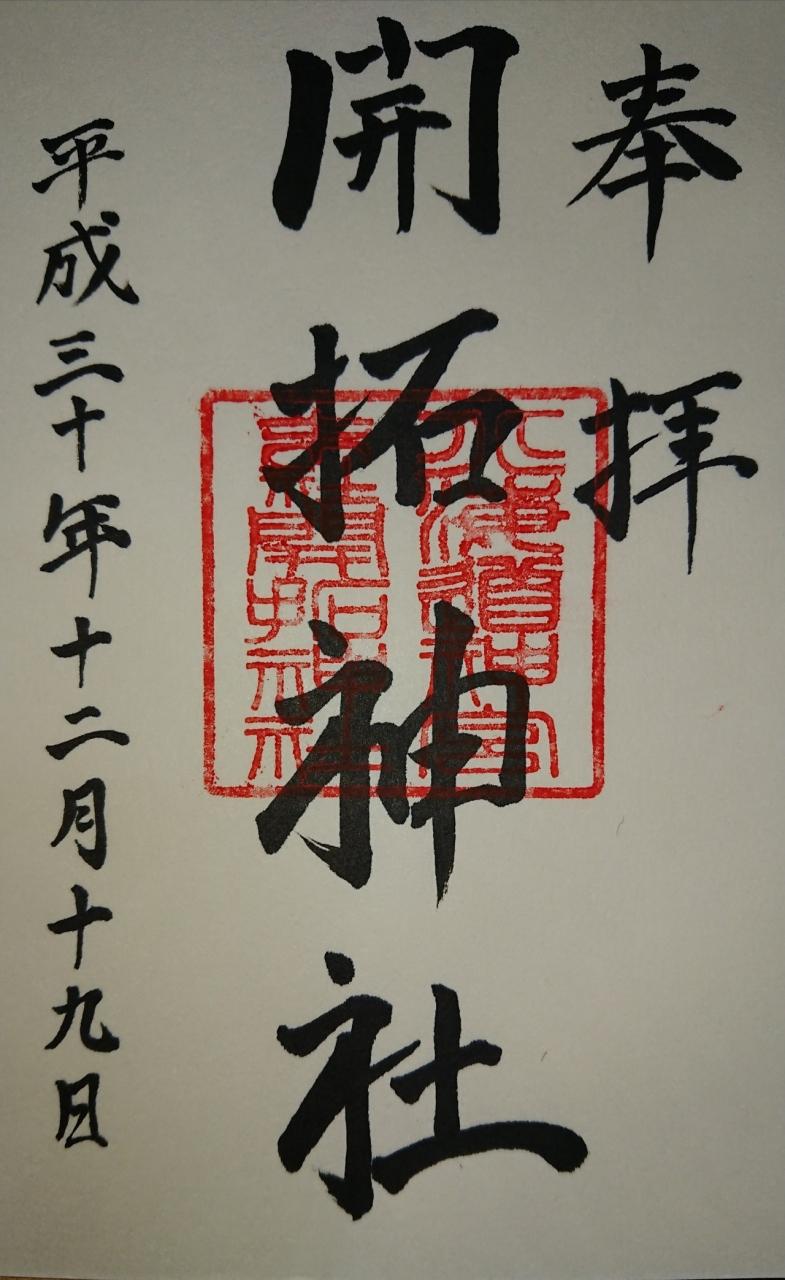 奉拝
開拓神社
北海道神宮
末開拓神社
平成三十年十二月十九日